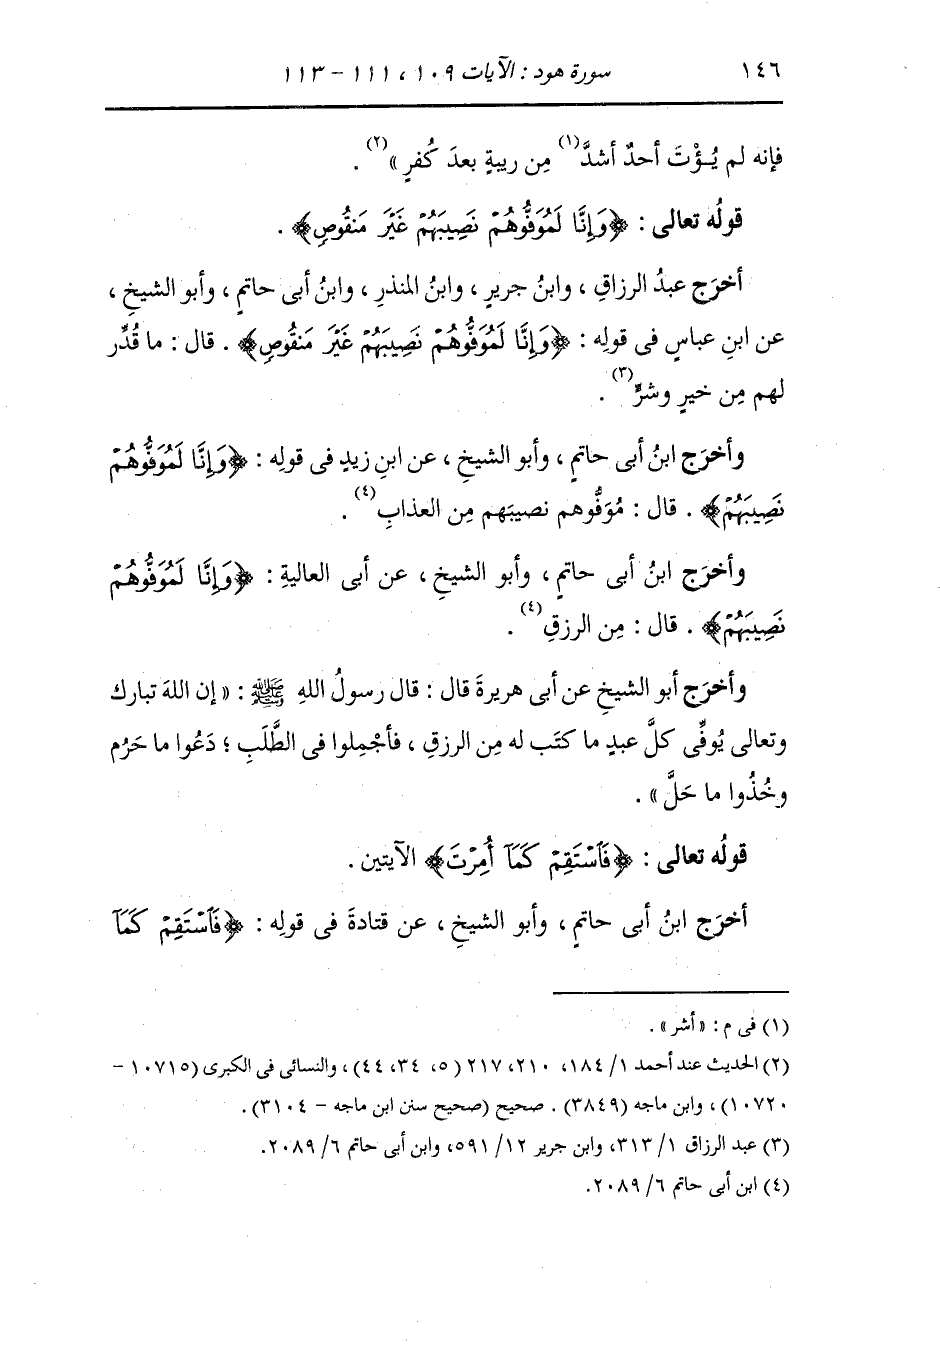 ١٤٦ سورة هود : الآيات ١٠٩ ، ١١١ - ١١٣
فإنه لم يُـؤْتَ أحدٌ أشدَّ(١) مِن ريبةٍ بعدَ كُفرٍ»(٢) .
قولُه تعالى : ﴿وَإِنَّا لَمُوَفُّوهُمْ نَصِيبَهُمْ غَيْرَ مَنقُوصٍ﴾ .
أخرَج عبدُ الرزاقِ ، وابنُ جريرٍ ، وابنُ المنذرِ ، وابنُ أبى حاتمٍ ، وأبو الشيخِ ،
عن ابنِ عباسٍ فى قولِه : ﴿وَإِنَّا لَمُوَفُّوهُمْ نَصِيبَهُمْ غَيْرَ مَنقُوصٍ﴾ . قال : ما قُدِّر
لهم مِن خيرٍ وشرٍّ(٣) .
وأخرَج ابنُ أبى حاتمٍ ، وأبو الشيخِ ، عن ابنِ زيدٍ فى قولِه : ﴿وَإِنَّا لَمُوَفُّوهُمْ
نَصِيبَهُمْ﴾ . قال : مُوَفُّوهم نصيبَهم مِن العذابِ(٤) .
وأخرَج ابنُ أبى حاتمٍ ، وأبو الشيخِ ، عن أبى العاليةِ : ﴿وَإِنَّا لَمُوَفُّوهُمْ
نَصِيبَهُمْ﴾ . قال : مِن الرزقِ(٤) .
وأخرَج أبو الشيخِ عن أبى هريرةَ قال : قال رسولُ اللهِ ﷺ : «إن اللهَ تبارك
وتعالى يُوفِّى كلَّ عبدٍ ما كتَب له مِن الرزقِ ، فأجْمِلوا فى الطَّلَبِ ؛ دَعُوا ما حَرُم
وخُذُوا ما حَلَّ» .
قولُه تعالى : ﴿فَٱسْتَقِمْ كَمَآ أُمِرْتَ﴾ الآيتين .
أخرَج ابنُ أبى حاتمٍ ، وأبو الشيخِ ، عن قتادةَ فى قولِه : ﴿فَٱسْتَقِمْ كَمَآ
(١) فى م : «أشر» .
(٢) الحديث عند أحمد ١/ ١٨٤، ٢١٠، ٢١٧ (٥، ٣٤، ٤٤) ، والنسائى فى الكبرى (١٠٧١٥ -
١٠٧٢٠) ، وابن ماجه (٣٨٤٩) . صحيح (صحيح سنن ابن ماجه - ٣١٠٤).
(٣) عبد الرزاق ١/ ٣١٣، وابن جرير ١٢/ ٥٩١، وابن أبى حاتم ٦/ ٢٠٨٩.
(٤) ابن أبى حاتم ٦/ ٢٠٨٩.